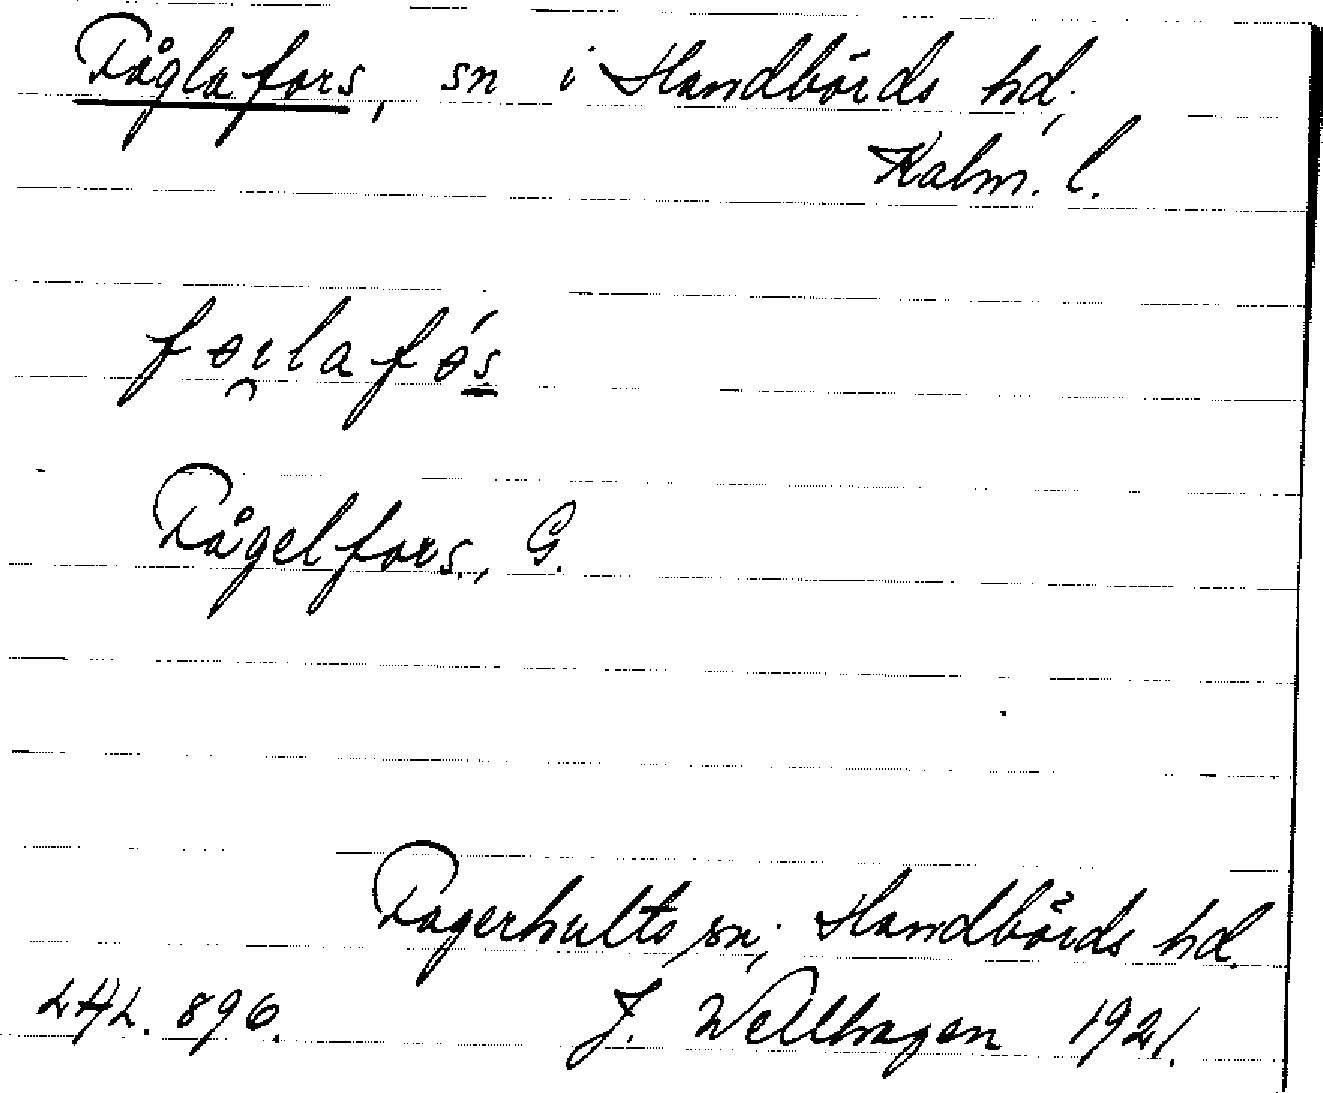 Fåglafors, sn i Handbörds hd,
Kalm. l.
Fågelfors, G.
Fagerhults sn, Handbörds hd.
LAL. 896. J. Wellhagen 1921.